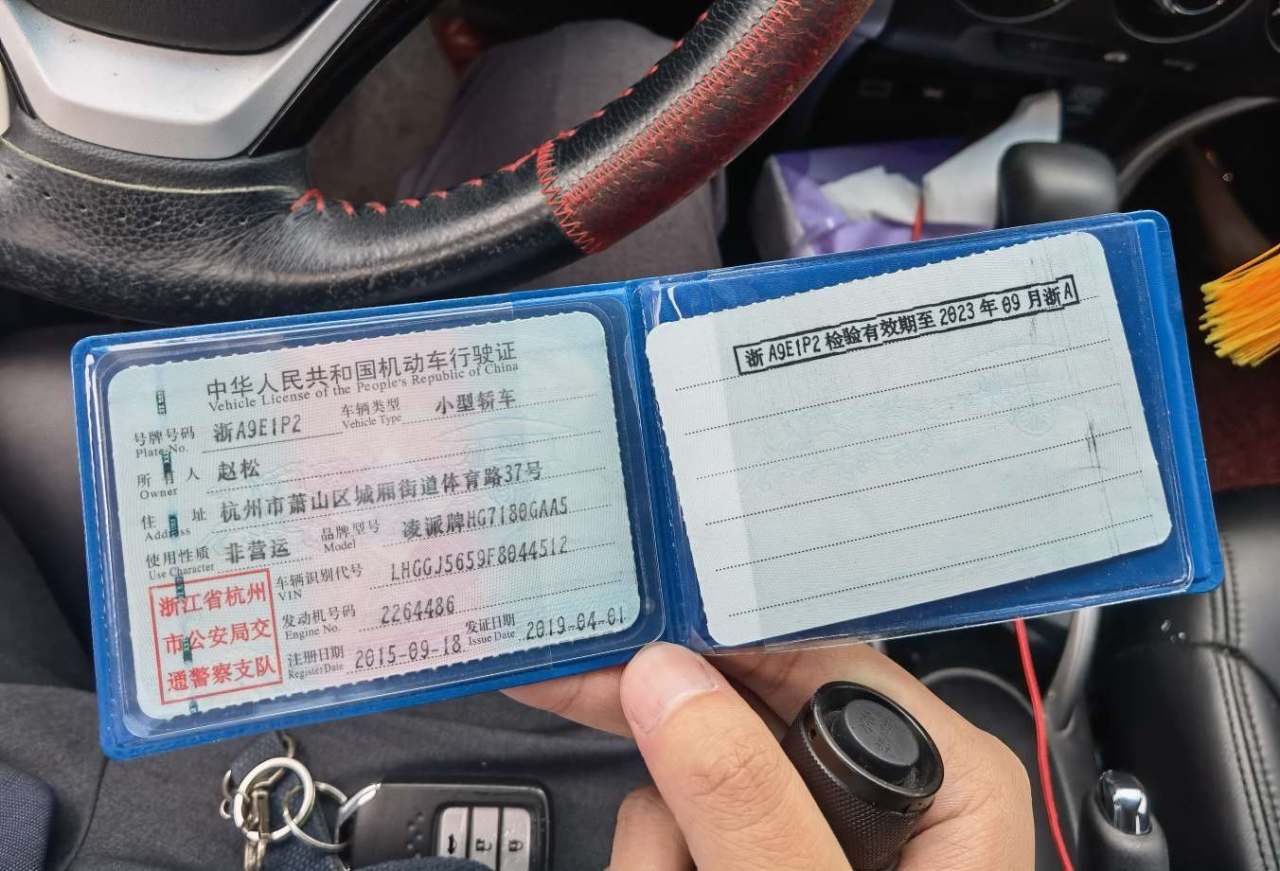 中华人民共和国机动车行驶证
Vehicle License of the People's Republic of China
号牌号码 浙A9E1P2 车辆类型 小型轿车
Plate No. Vehicle Type
所有人 赵松
Owner
住址 杭州市萧山区城厢街道体育路37号
Address
使用性质 非营运 品牌型号 凌派牌HG7180GAA5
Use Character Model
浙江省杭州
市公安局交
通警察支队
车辆识别代号 LHGGJ5659F8044512
VIN
发动机号码 2264486
Engine No.
注册日期 2015-09-18 发证日期 2019-04-01
Register Date Issue Date
浙A9E1P2检验有效期至2023年09月浙A